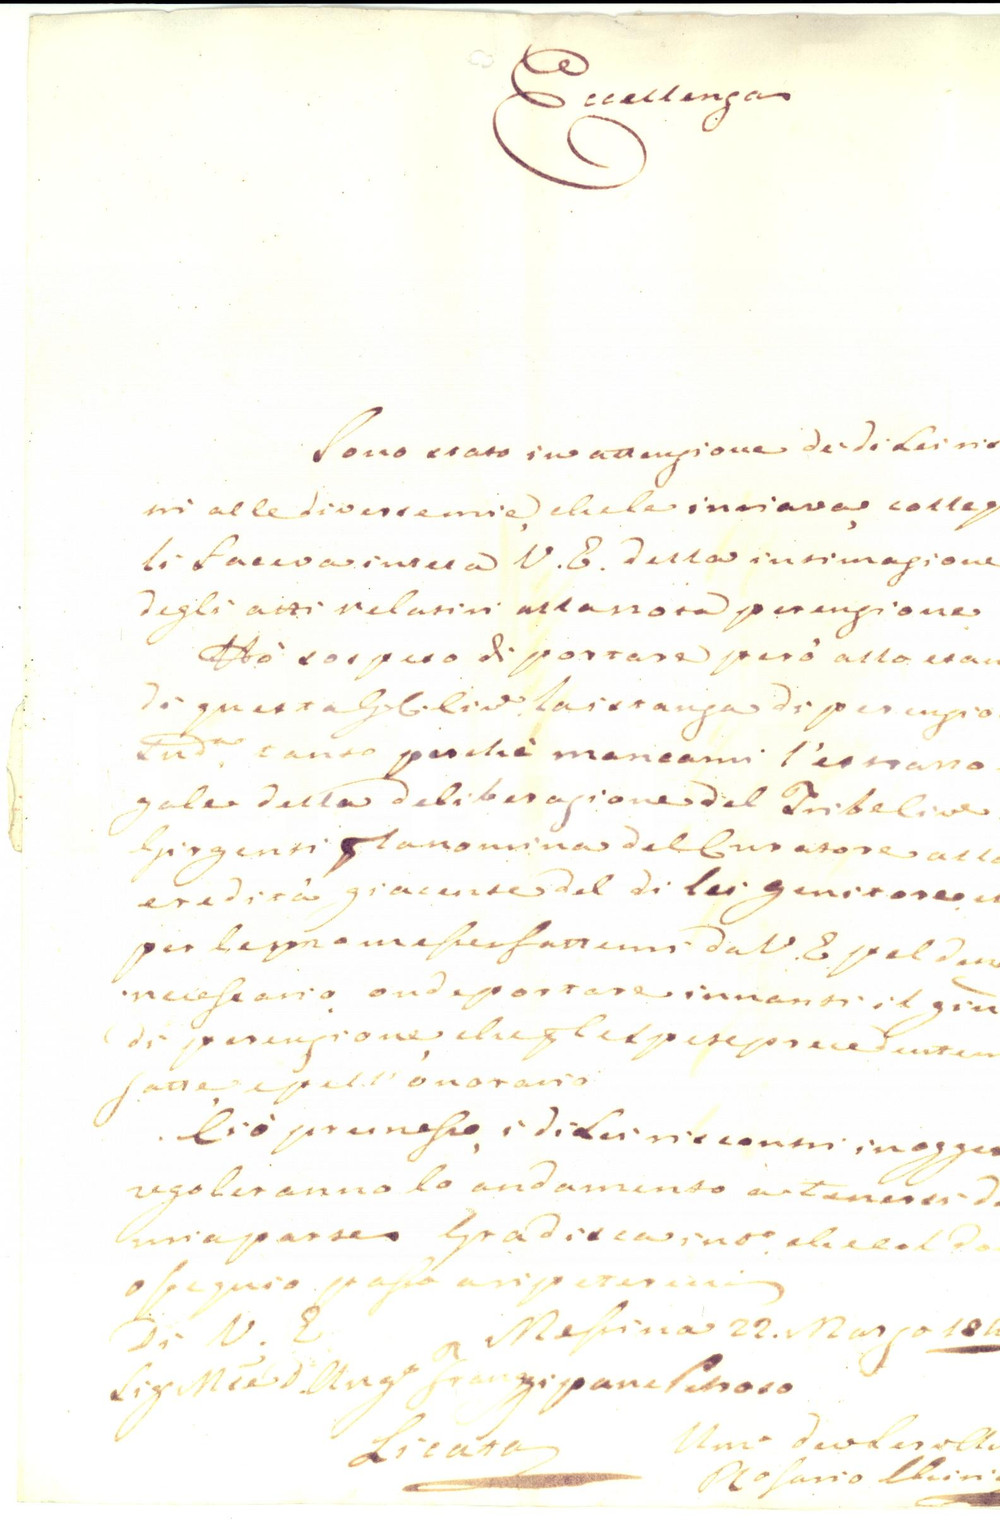 Eccellenza
Sono stato in attenzione de di Lei ris
ni alle diverse mie, che le inviava, colle q
li faceva intesa V. E. della intimazione
degli atti relativi alla nota perenzione
Hò sospeso di portare però allo esam
di questo G. C. Civ. la istanza di perenzio
Sud.a, tanto perchè mancami l'estratto
gale della deliberazione del Trib.e Civ.e
Girgenti p la nomina del Curatore alla
eredità giacente del di lei genitore, e
per le promesse fattemi da V. E. pel den
necessario onde portare innanti il giu
di perenzione, che p le spese precedentem
fatte, e pell'onorario
Ciò premesso, i di Lei riscontri in ogge
regoleranno lo andamento a tenersi d
mia parte. Gradisca int.o che col do
ossequio passo a ripetermi
Di V. E.
Messina 22. Marzo 184
Sig. M.se D. Ang.o Frangipane Celloso
Licata
Um.o dev.o
Rosario